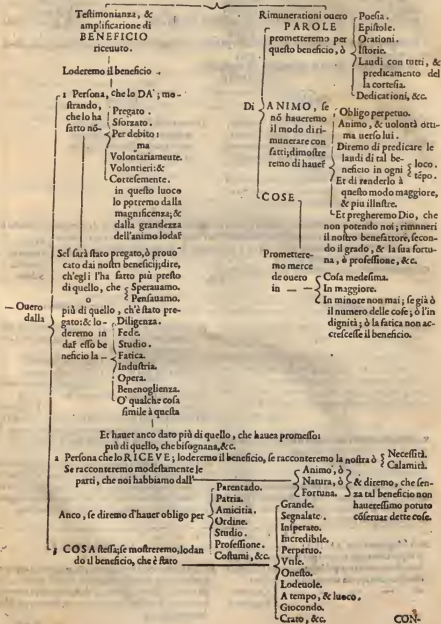 Testimonianza, &
amplificatione di
BENEFICIO
riceuuto.
Loderemo il beneficio
1 Persona, che lo DA'; mo-
strando,
che lo ha
fatto nõ
Pregato.
Sforzato.
Per debito:
ma
Volontariamente.
Volontieri: &
Cortesemente.
in questo luoco
lo potremo dalla
magnificenza; &
dalla grandezza
dell'animo lodar
Ses' sarà stato pregato, ò prouo
cato dai nostri beneficij; dire,
ch'egli l'ha fatto più presto
di quello, che
Sperauamo.
o
Pensauamo.
più di quello, ch'è stato pre-
gato: & lo-
deremo in
dar esso be
neficio la
Diligenza.
Fede.
Studio.
Fatica.
Industria.
Opera.
Beneuoglienza.
O' qualche cosa
simile à questa
Ouero
dalla
Et hauer anco dato più di quello, che hauea promesso:
più di quello, che bisognaua, &c.
2 Persona che lo RICEVE; loderemo il beneficio, se racconteremo la nostra ò
Necessità.
Calamità.
Se racconteremo modestamente le
parti, che noi habbiamo dall'
Animo, ò
Natura, ò
Fortuna.
& diremo, che sen-
za tal beneficio non
haueressimo potuto
cõseruar dette cose.
Anco, se diremo d'hauer obligo per
Parentado.
Patria.
Amicitia.
Ordine.
Studio.
Professione.
Costumi, &c.
3 COSA stessa; se mostreremo, lodan
do il beneficio, che è stato
Grande.
Segnalate.
Insperato.
Incredibile.
Perpetuo.
Vtile.
Onesto.
Lodeuole.
A tempo, & luoco.
Giocondo.
Grato, &c.
Rimunerationi ouero
PAROLE
prometteremo per
questo beneficio, ò
Poesia.
Epistole.
Orationi.
Istorie.
Laudi con tutti, &
predicamento del
la cortesia.
Dedicationi, &c.
Di
ANIMO, se
nõ haueremo
il modo di ri-
munerare con
fatti; dimostre
remo di hauer
Obligo perpetuo.
Animo, & uolontà otti-
ma uerso lui.
Diremo di predicare le
laudi di tal be-
neficio in ogni
loco.
tẽpo.
Et di renderlo à
questo modo maggiore,
& piu illustre.
Et pregheremo Dio, che
non potendo noi; rimuneri
il nostro benefattore, secon-
do il grado, & la sua fortu-
na, ò professione, &c.
COSE
Promettere-
mo merce
de ouero
in
Cosa medesima.
In maggiore.
In minore non mai; se già ò
il numero delle cose; ò l'in
dignità; ò la fatica non ac-
crescesse il beneficio.
CON-